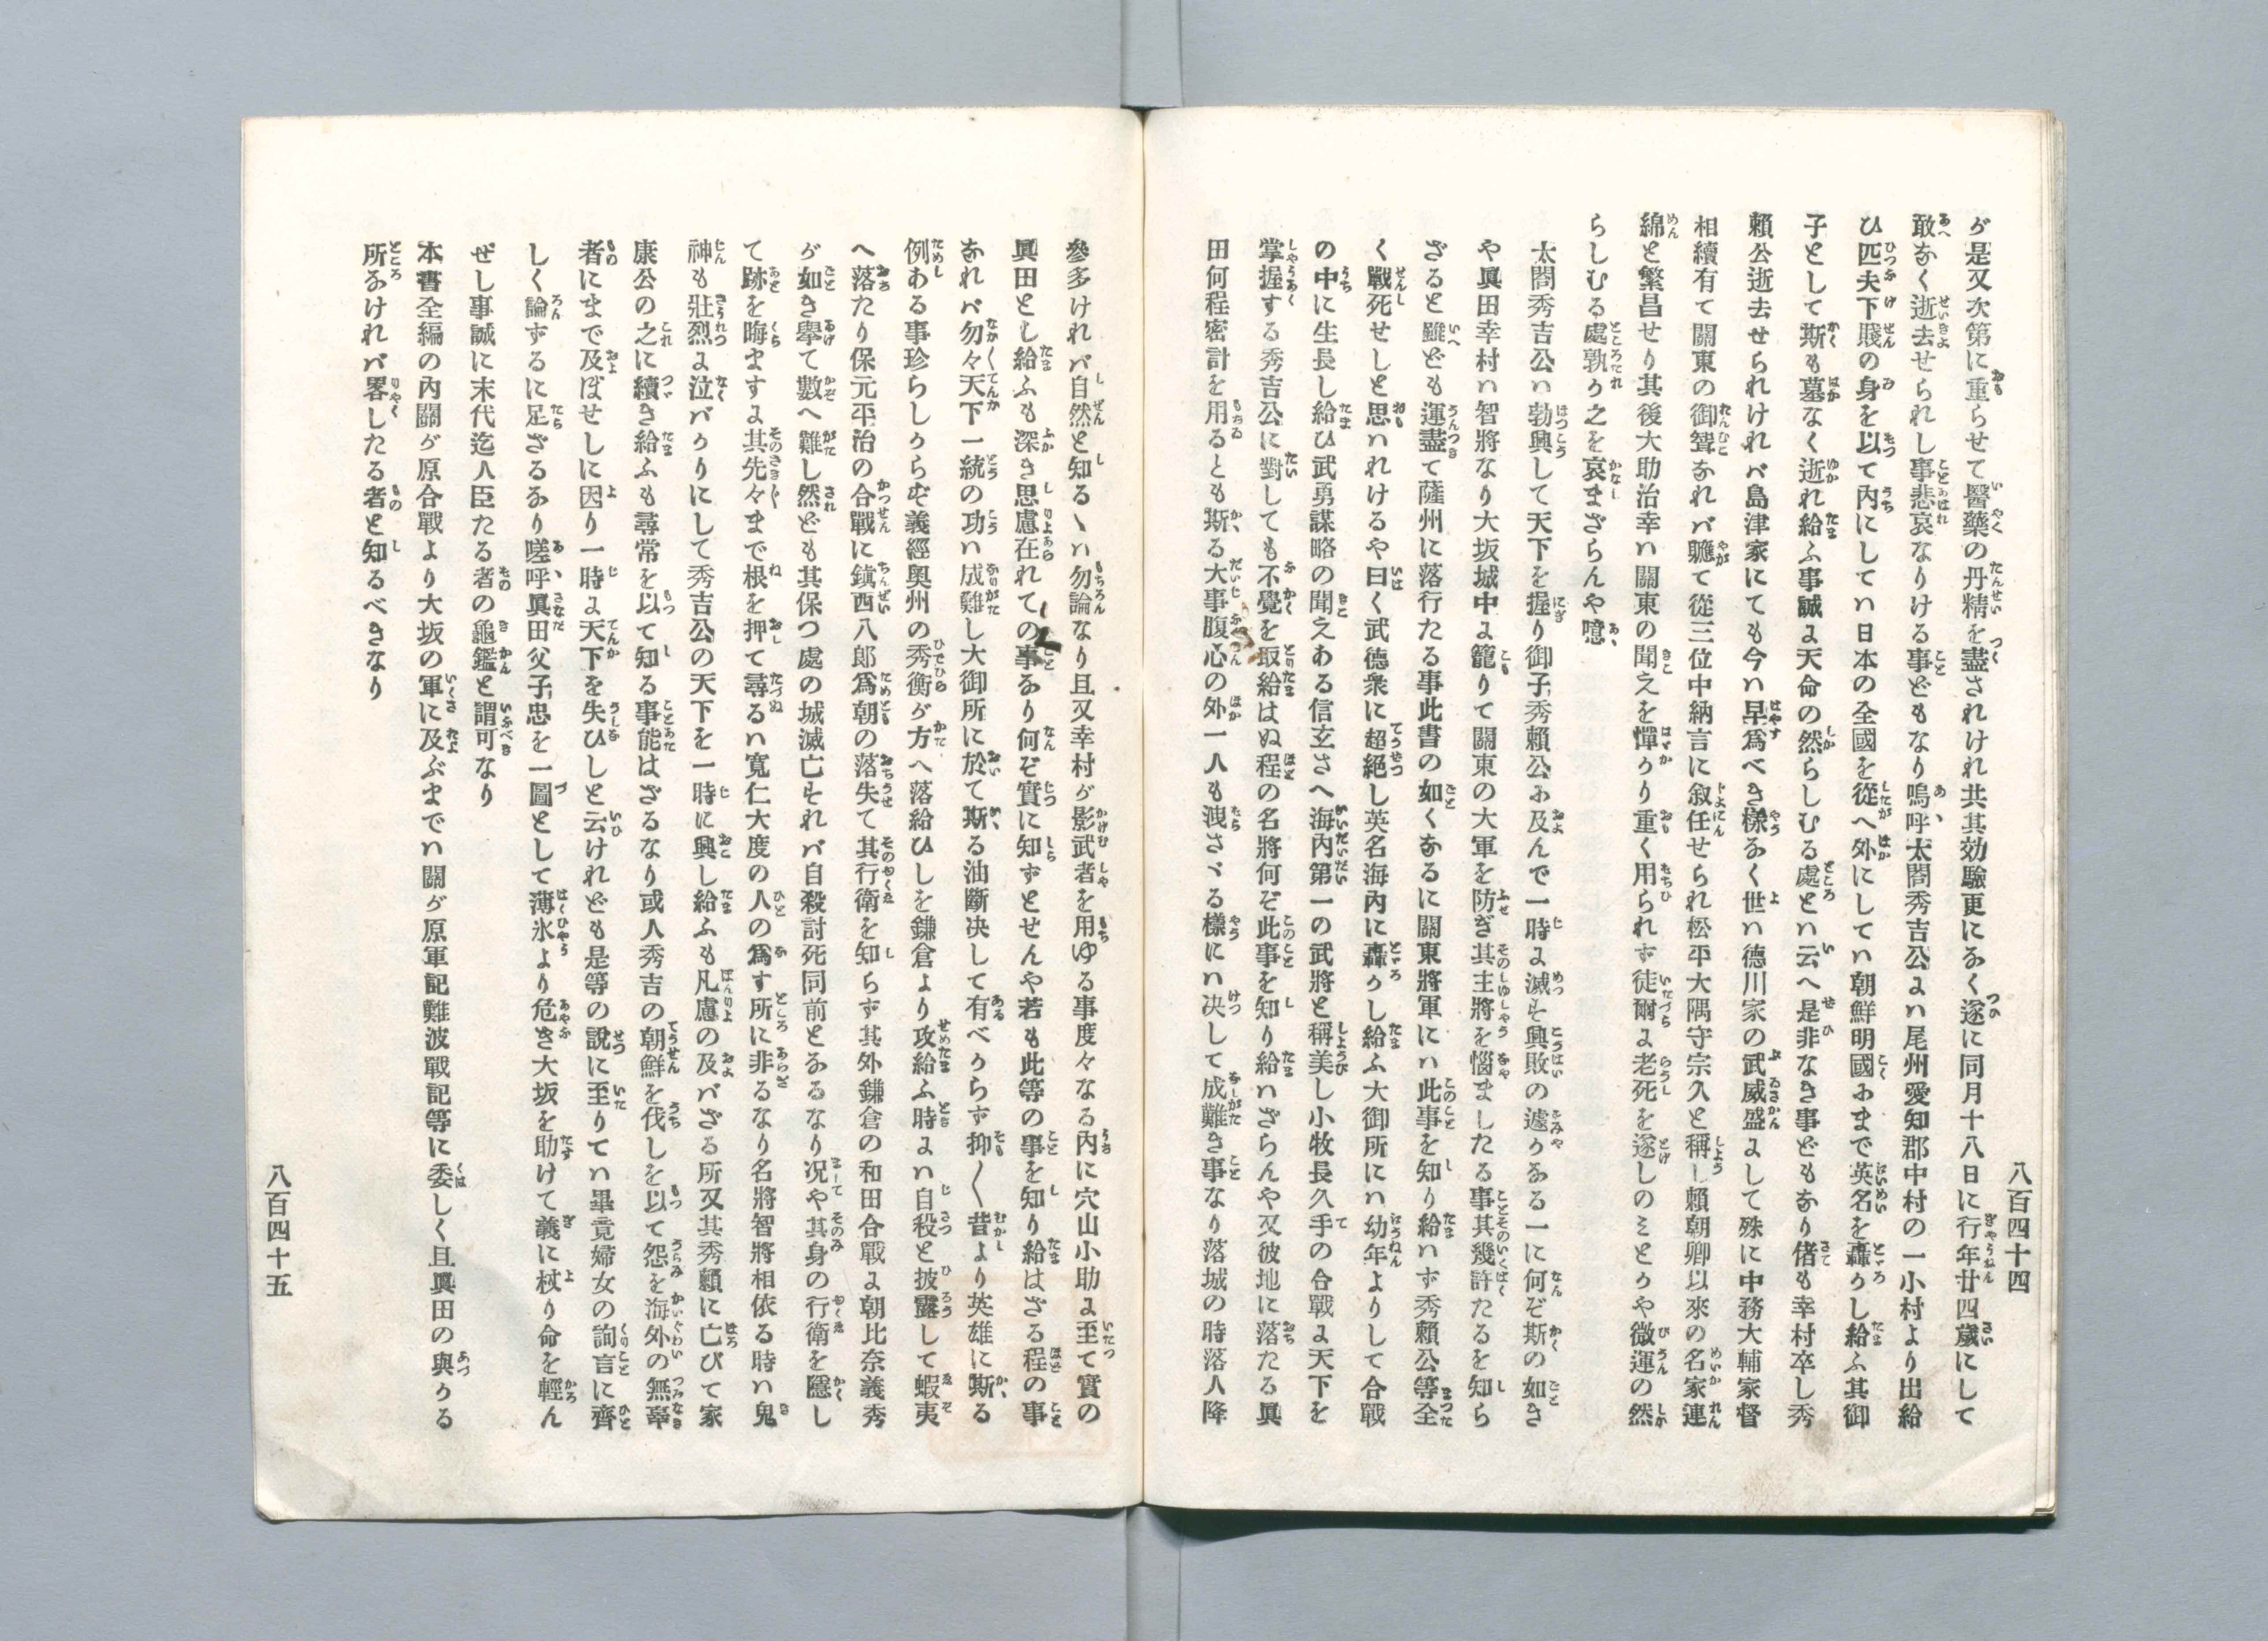 八百四十四
が是又次第に重らせて醫藥の丹精を盡されけれ共其効驗更になく遂に同月十八日に行年廿四歲にして
敢なく逝去せられし事悲哀なりける事どもなり嗚呼太閤秀吉公には尾州愛知郡中村の一小村より出給
ひ匹夫下賤の身を以て內にしては日本の全國を從へ外にしては朝鮮明國おまで英名を轟かし給ふ其御
子として斯も墓なく逝れ給ふ事誠に天命の然らしむる處とは云へ是非なき事どもなり偖も幸村卒し秀
賴公逝去せられければ島津家にても今は早爲べき樣なく世は德川家の武威盛にして殊に中務大輔家督
相續有て關東の御聟なれば軈て從三位中納言に叙任せられ松平大隅守宗久と稱し賴朝卿以來の名家連
綿と繁昌せり其後大助治幸は關東の聞えを憚かり重く用られず徒爾に老死を遂しのミとかや微運の然
らしむる處孰か之を哀まざらんや噫
太閤秀吉公は勃興して天下を握り御子秀賴公お及んで一時に滅も興敗の遽かなる一に何ぞ斯の如き
や眞田幸村は智將なり大坂城中に籠りて關東の大軍を防ぎ其主將を惱ましたる事其幾許たるを知ら
ざると雖ども運盡て薩州に落行たる事此書の如くなるに關東將軍には此事を知り給はず秀賴公等全
く戰死せしと思はれけるや曰く武德衆に超絕し英名海內に轟かし給ふ大御所には幼年よりして合戰
の中に生長し給ひ武勇謀略の聞えある信玄さへ海內第一の武將と稱美し小牧長久手の合戰に天下を
掌握する秀吉公に對しても不覺を取給はぬ程の名將何ぞ此事を知り給はざらんや又彼地に落たる眞
田何程密計を用るとも斯る大事腹心の外一人も洩さゞる樣には决して成難き事なり落城の時落人降
參多ければ自然と知るゝは勿論なり且又幸村が影武者を用ゆる事度々なる內に穴山小助に至て實の
眞田とし給ふも深き思慮在れての事なり何ぞ實に知ずとせんや若も此等の事を知り給はざる程の事
なれば勿々天下一統の功は成難し大御所に於て斯る油斷决して有べからず抑〱昔より英雄に斯る
例ある事珍らしからず義經奧州の秀衡が方へ落給ひしを鎌倉より攻給ふ時には自殺と披露して蝦夷
へ落たり保元平治の合戰に鎭西八郎爲朝の落失て其行衛を知らず其外鎌倉の和田合戰に朝比奈義秀
が如き擧て數へ難し然ども其保つ處の城滅亡それば自殺討死同前となるなり况や其身の行衛を隱し
て跡を晦ますに其先々まで根を押て尋るは寬仁大度の人の爲す所に非るなり名將智將相依る時は鬼
神も壯烈に泣ばかりにして秀吉公の天下を一時に興し給ふも凡慮の及ばざる所又其秀賴に亡びて家
康公の之に續き給ふも尋常を以て知る事能はざるなり或人秀吉の朝鮮を伐しを以て怨を海外の無辜
者にまで及ぼせしに因り一時に天下を失ひしと云けれども是等の說に至りては畢竟婦女の詢言に齊
しく論ずるに足ざるなり嗟呼眞田父子忠を一圖として薄氷より危き大坂を助けて義に杖り命を輕ん
ぜし事誠に末代迄人臣たる者の龜鑑と謂可なり
本書全編の內關が原合戰より大坂の軍に及ぶまでは關が原軍記難波戰記等に委しく且眞田の與かる
所なければ畧したる者と知るべきなり
八百四十五